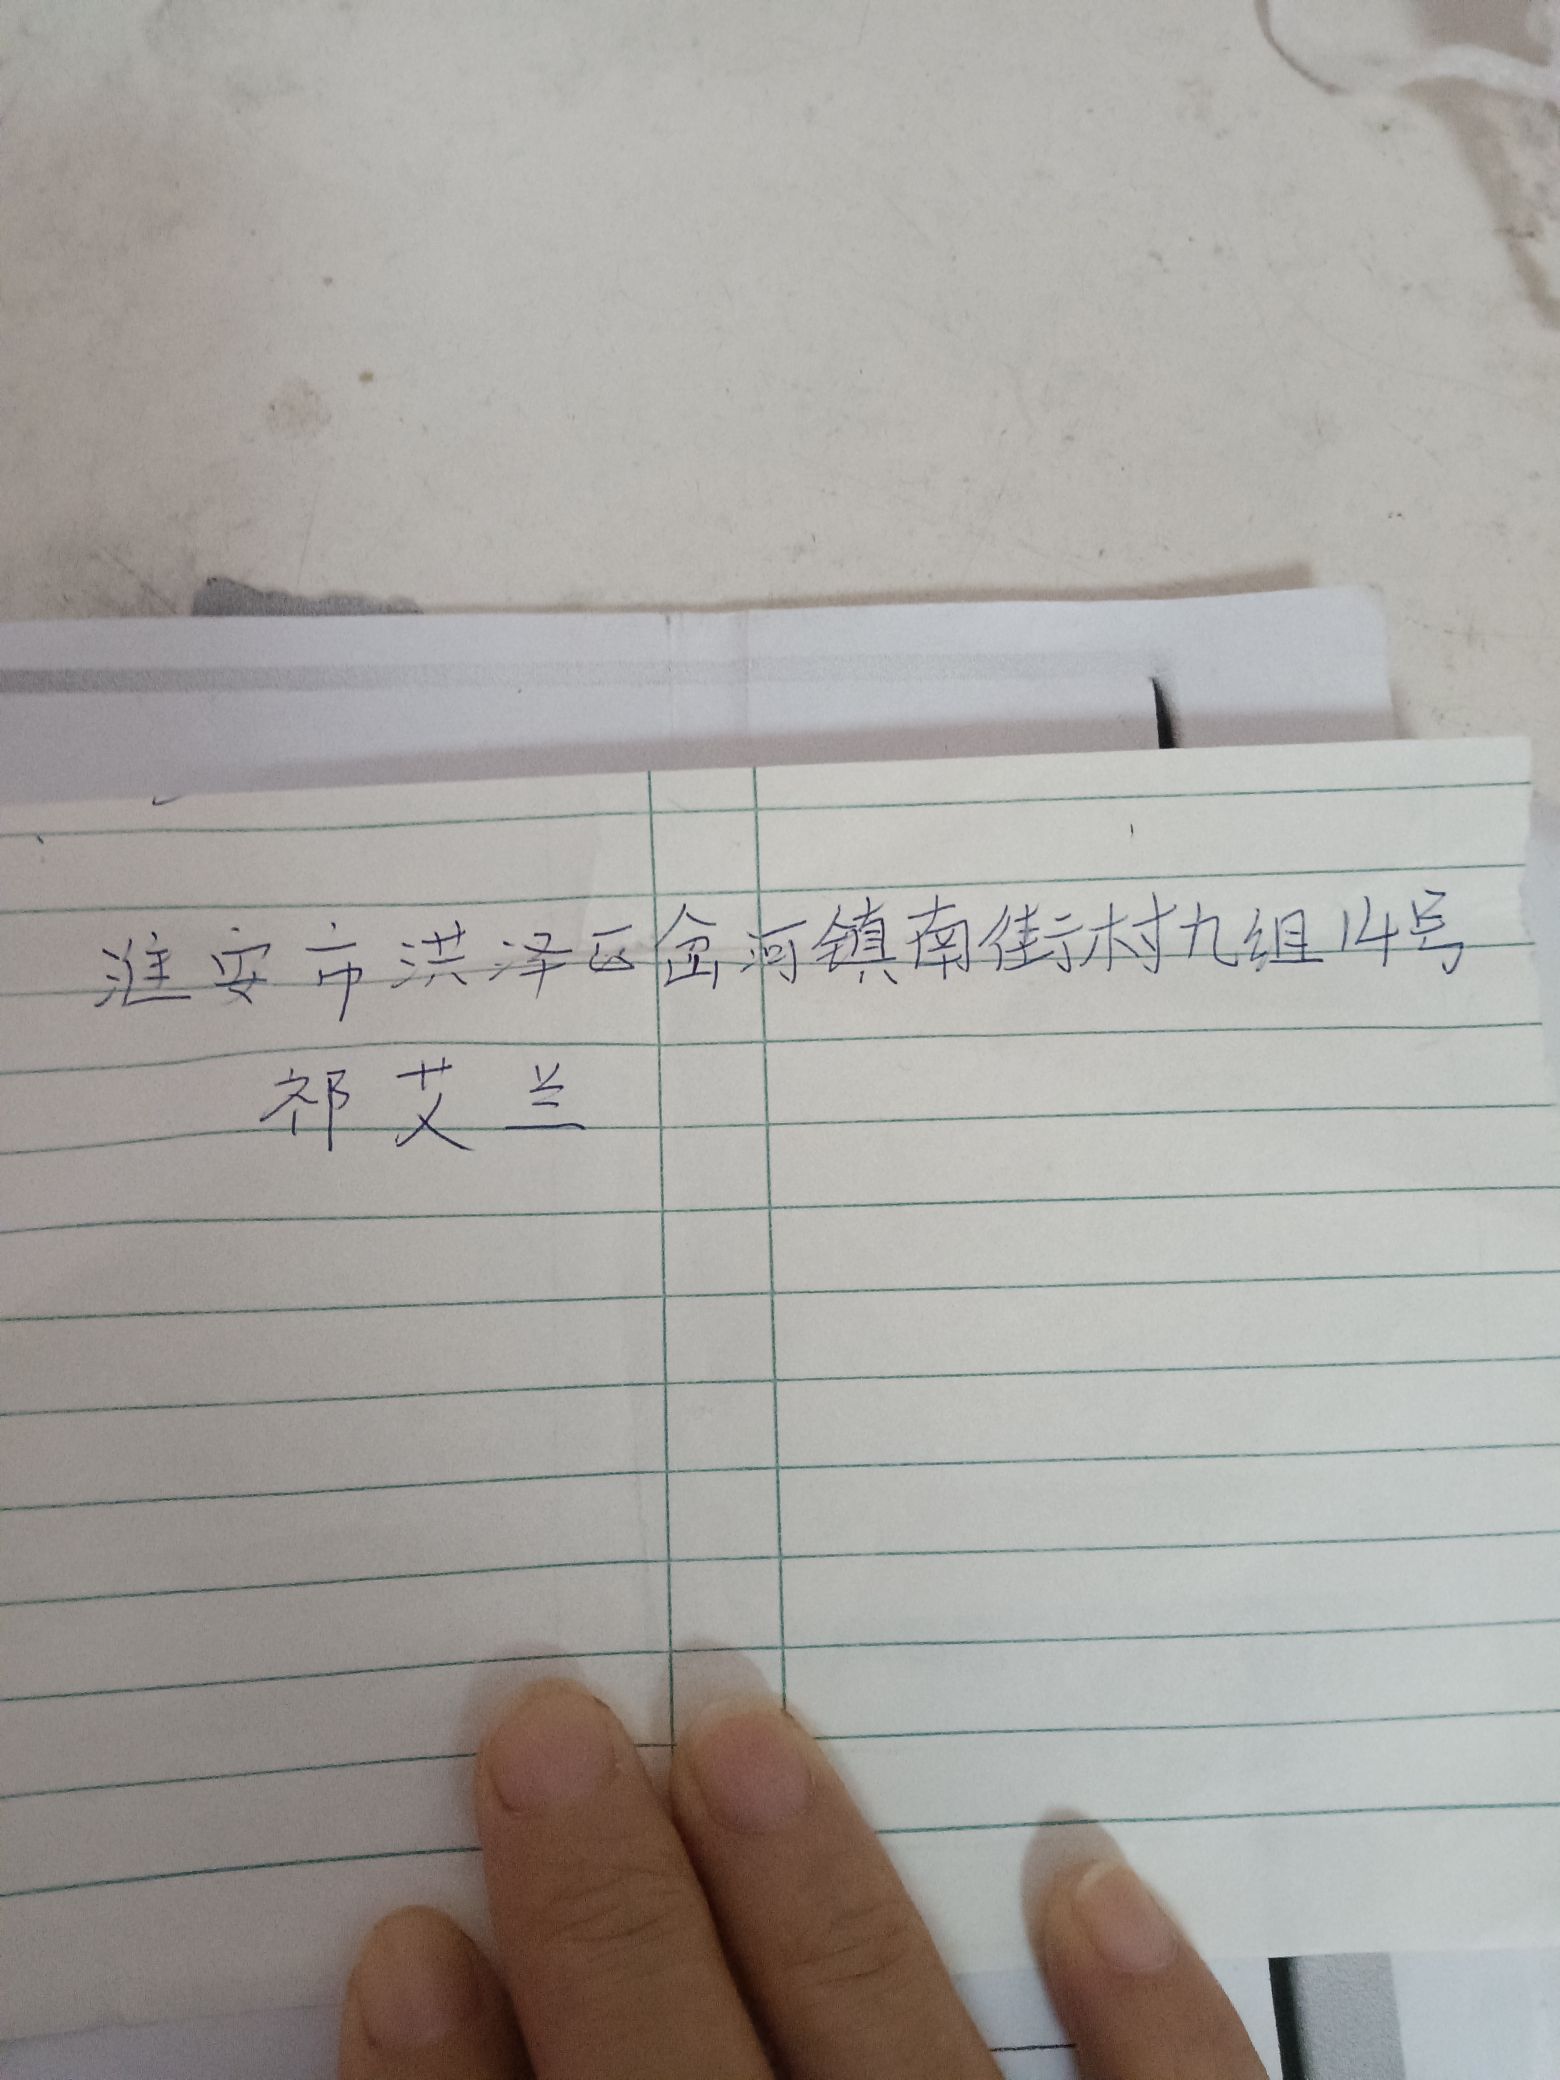 淮安市洪泽区岔河镇南街村九组14号
祁艾兰